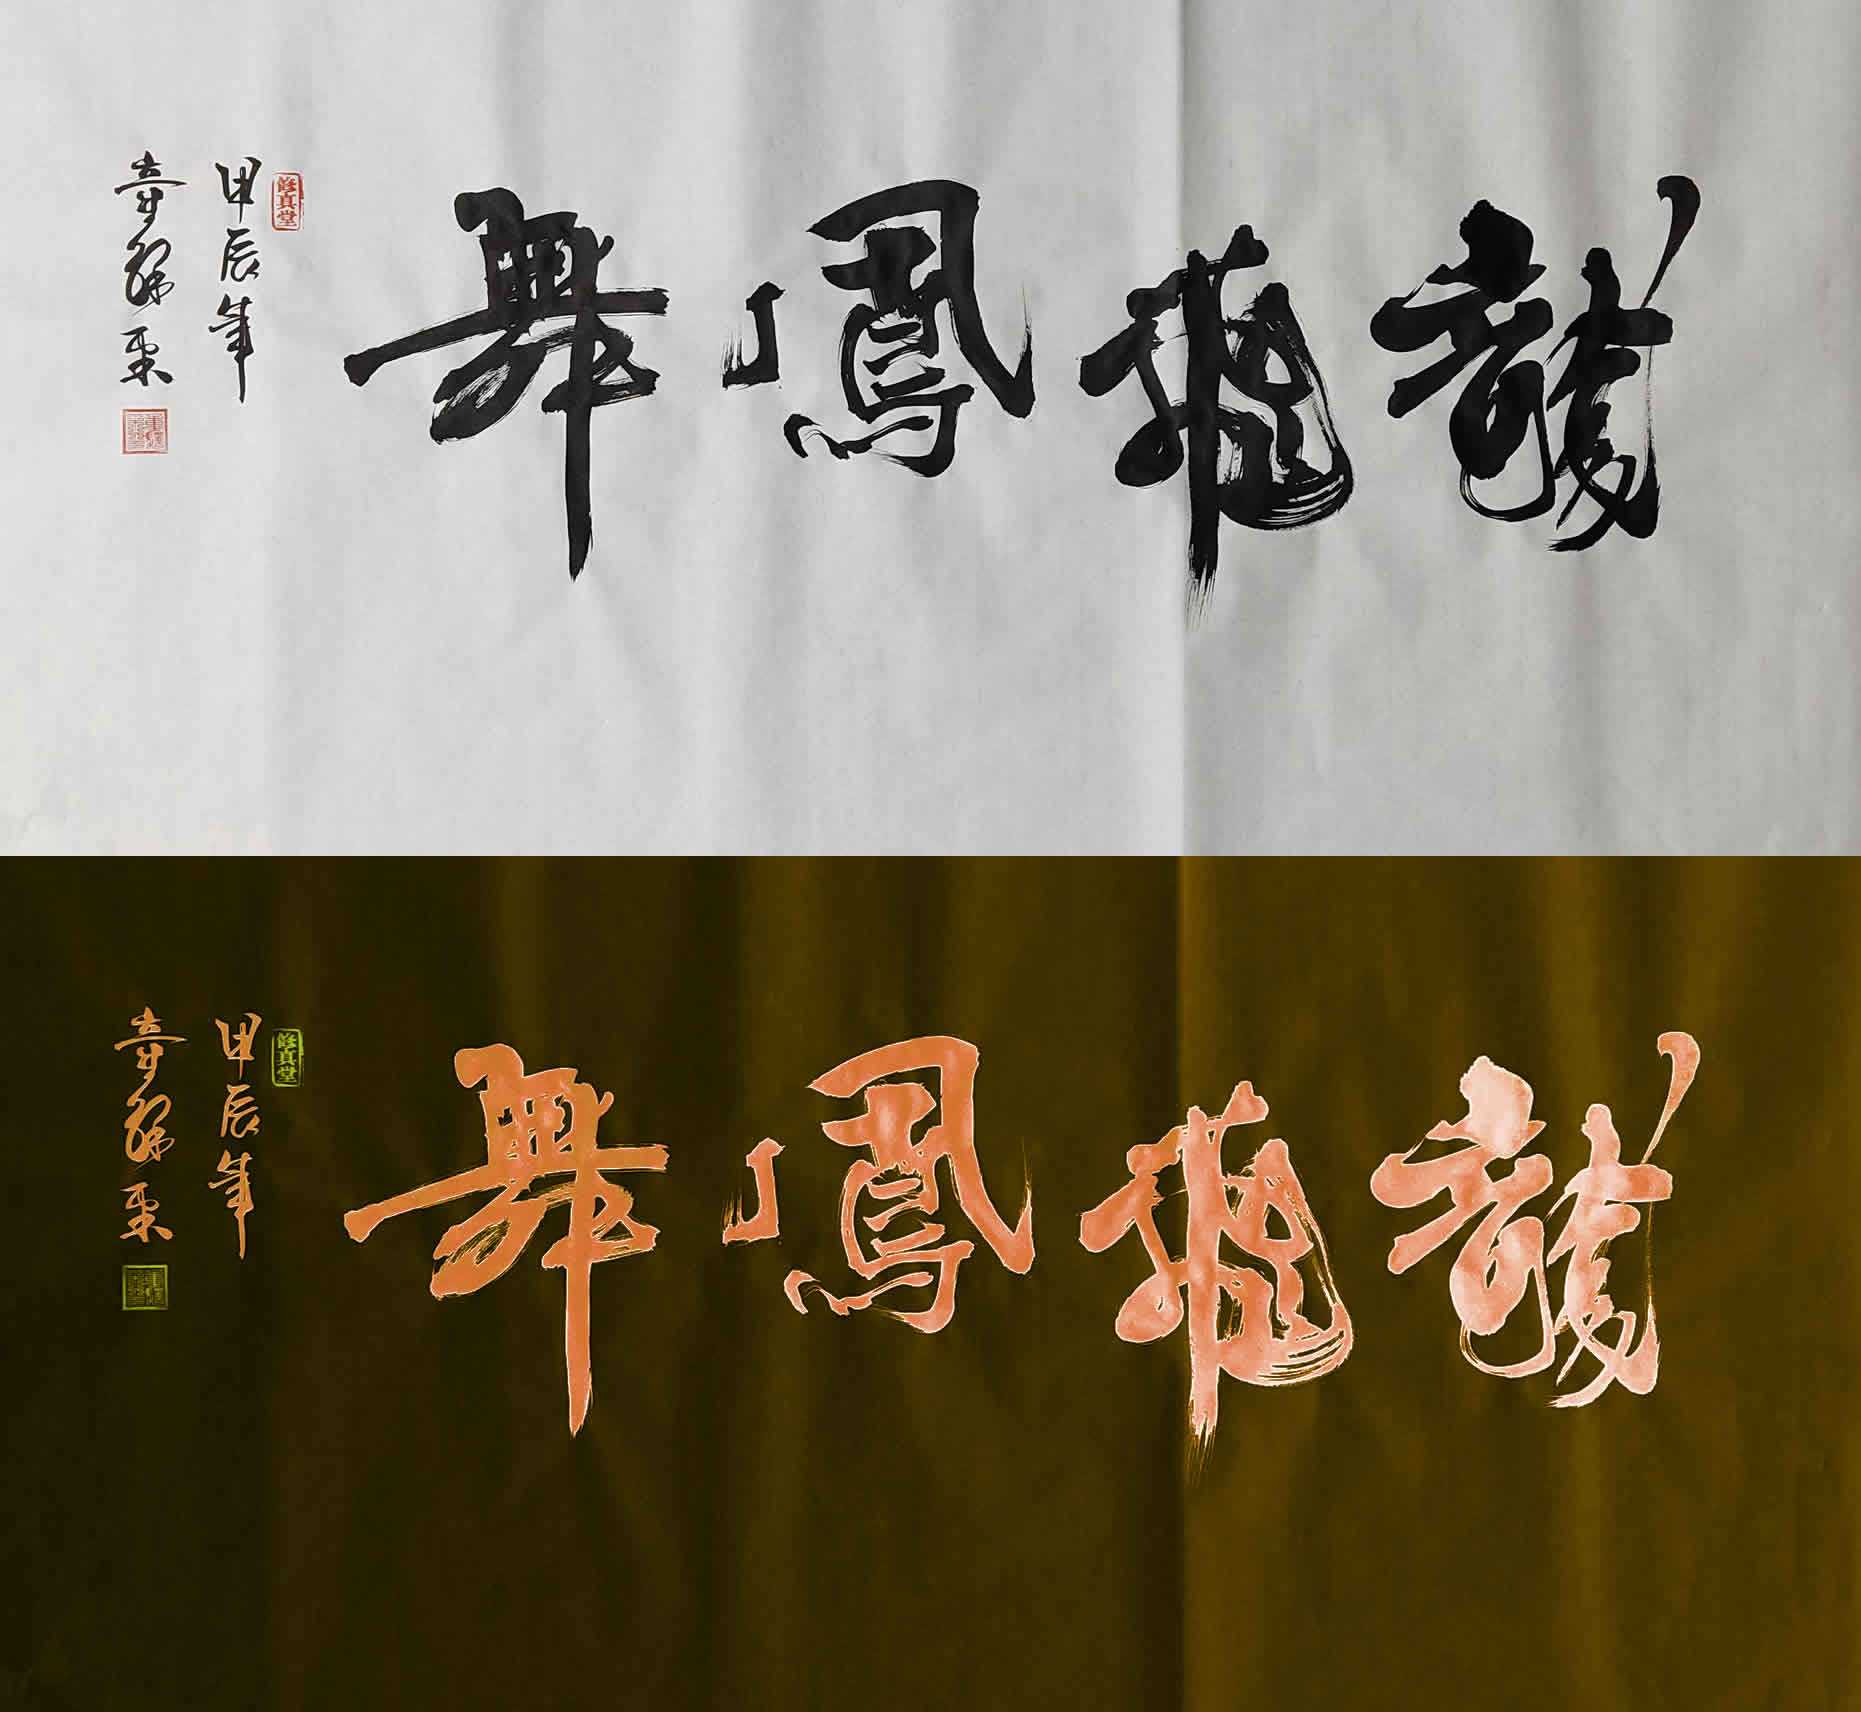 龍飛鳳舞
修真堂
甲辰年
龍飛鳳舞
修真堂
甲辰年